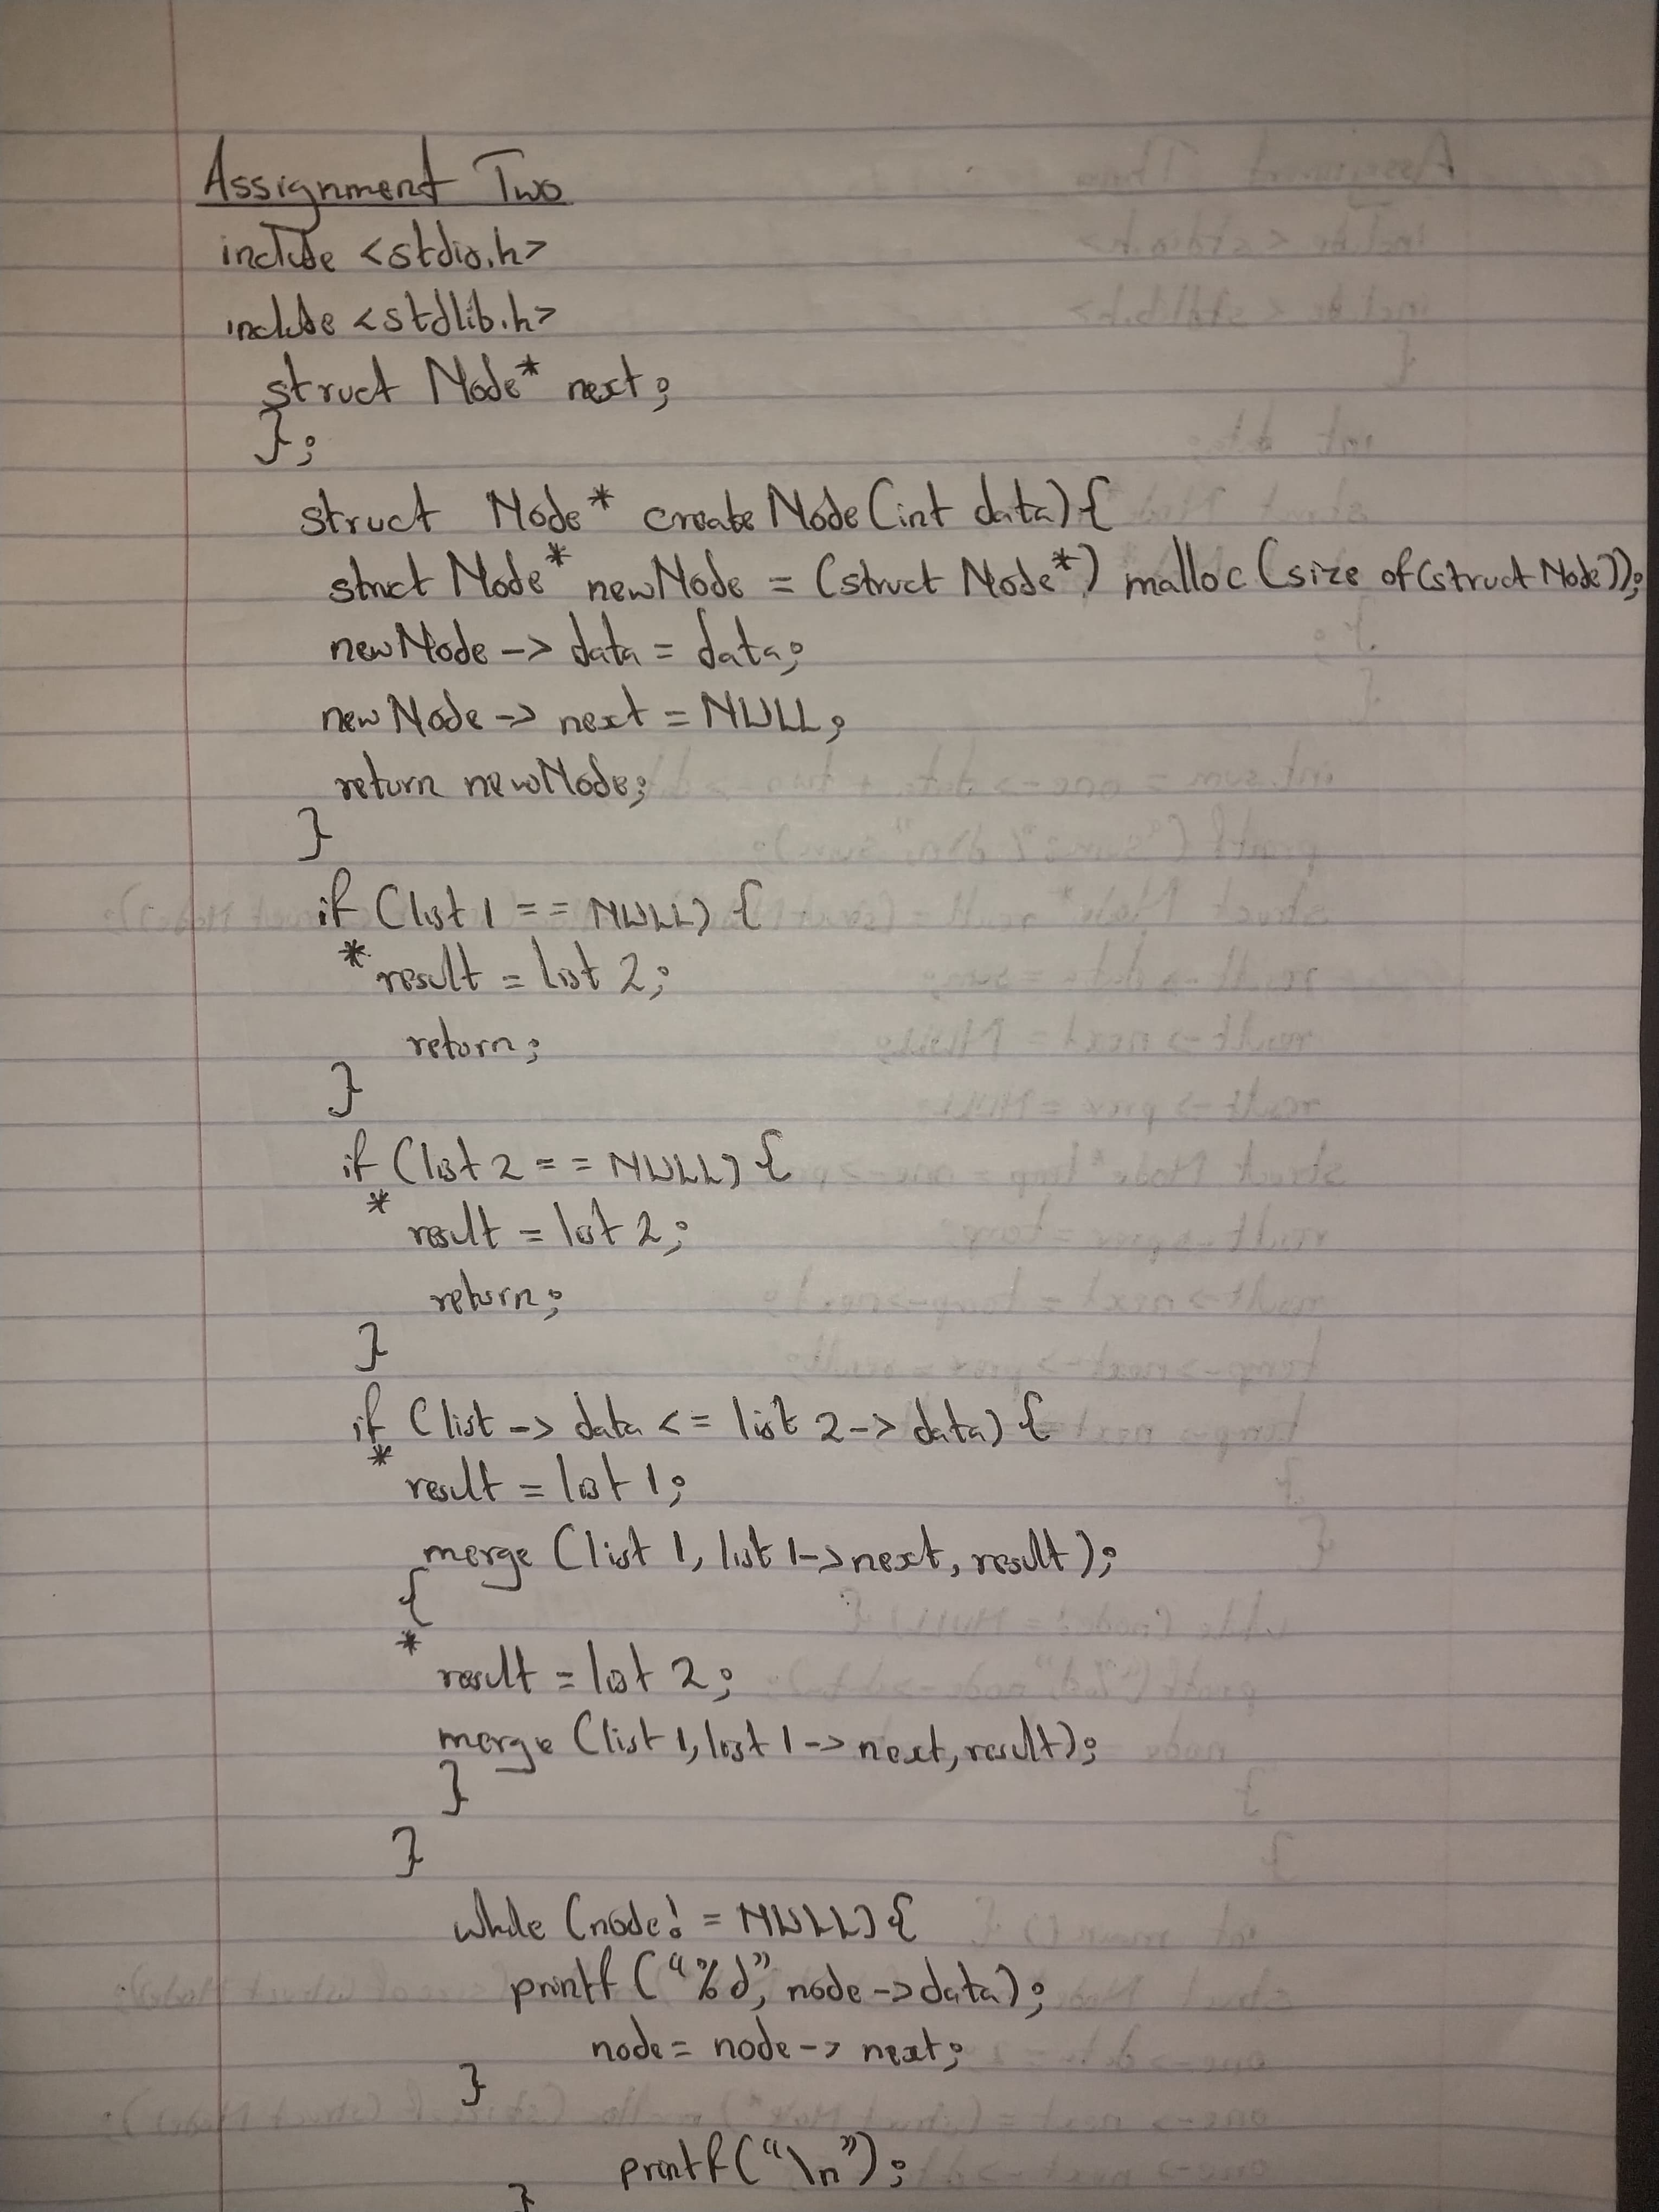 Assignment Two
include <stdio.h>
include <stdlib.h>
struct Node* next;
};
struct Node* createNode(int data){
struct Node* newNode = (struct Node*) malloc (size of(struct Node));
newNode -> data = data;
newNode -> next = NULL;
return newNode;
}
if (list 1 == NULL) {
* result = list 2;
return;
}
if (list 2 == NULL) {
* result = list 2;
return;
}
if (list -> data <= list 2 -> data) {
* result = list 1;
merge (list 1, list 1->next, result);
{
* result = list 2;
merge (list 1, list 1 -> next, result);
}
}
while (node! = NULL) {
printf ("%d", node ->data);
node = node -> next;
}
printf("\n");
}